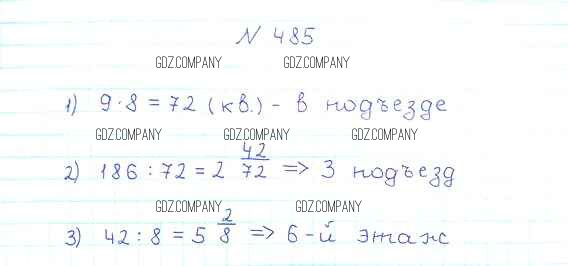 N 485
GDZ.COMPANY GDZ.COMPANY
1) 9·8 = 72 (кв.) - в подъезде
GDZ.COMPANY GDZ.COMPANY GDZ.COMPANY
2) 186 : 72 = 2 42/72 => 3 подъезд
GDZ.COMPANY GDZ.COMPANY
3) 42 : 8 = 5 2/8 => 6-й этаж